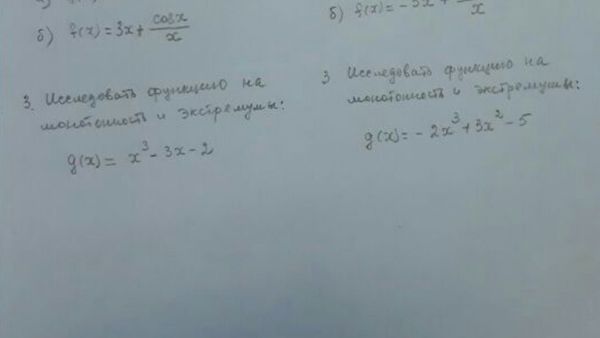 б) f(x) = 3x + cosx/x
3. Исследовать функцию на
монотонность и экстремумы:
g(x) = x³ - 3x - 2
б) f(x) = - 3x + /x
3 Исследовать функцию на
монотонность и экстремумы:
g(x) = - 2x³ + 3x² - 5